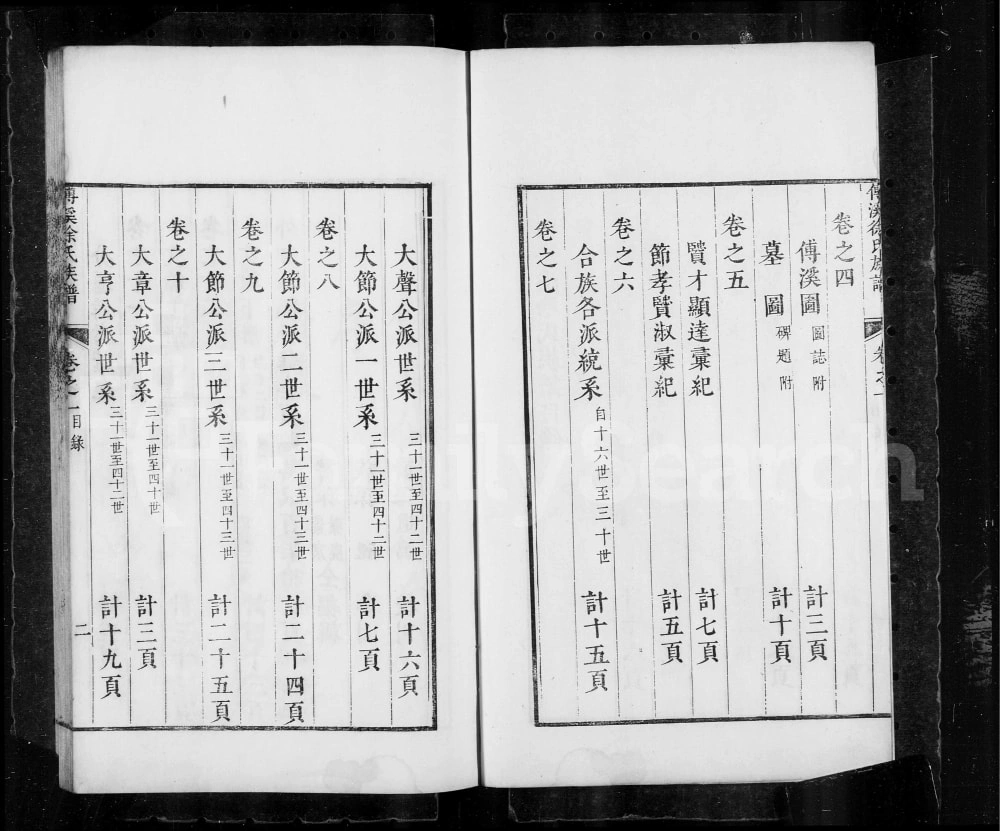 傅溪徐氏族譜
卷之四
傅溪圖 圖誌附 計三頁
墓圖 碑題附 計十頁
卷之五
賢才顯達彙紀 計七頁
節孝賢淑彙紀 計五頁
卷之六
合族各派統系 自十六世至三十世 計十五頁
卷之七
大聲公派世系 三十一世至四十二世 計十六頁
大節公派一世系 三十一世至四十二世 計七頁
卷之八
大節公派二世系 三十一世至四十三世 計二十四頁
卷之九
大節公派三世系 三十一世至四十三世 計二十五頁
卷之十
大章公派世系 三十一世至四十世 計三頁
大亨公派世系 三十一世至四十二世 計十九頁
傅溪徐氏族譜 卷之一 目錄 二